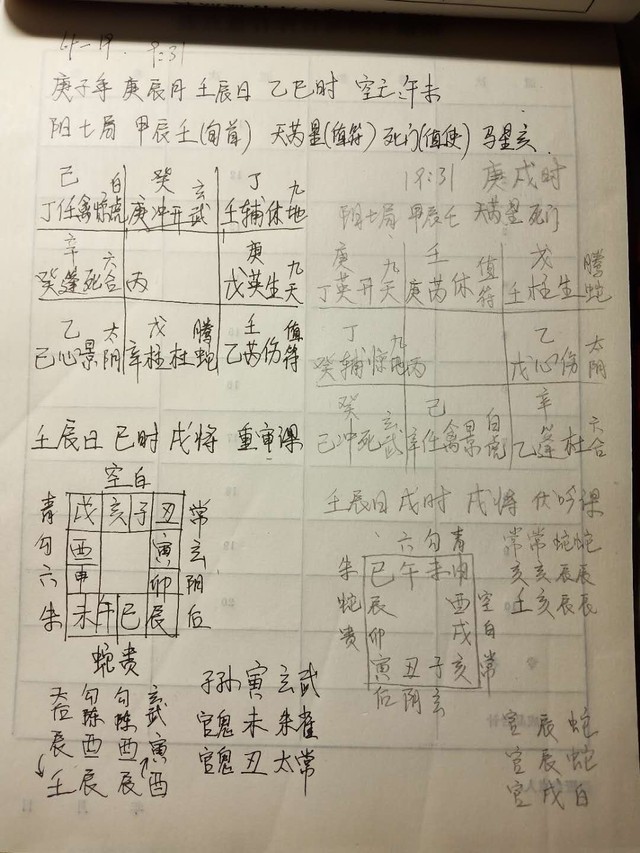 4-19. 9:31
庚子年 庚辰月 壬辰日 乙巳时 空亡:午未
阳七局 甲辰壬(旬首) 天芮星(值符) 死门(值使) 马星亥
己 白 癸 玄 丁 九
丁任禽惊虎 庚冲开武 壬辅休地
辛 六 庚 九
癸蓬死合 丙 戊英生天
乙 太 戊 腾 壬 值
己心景阴 辛柱杜蛇 乙芮伤符
19:31 庚戌时
阳七局 甲辰壬 天芮星 死门
庚 九 壬 值 戊 腾
丁英开天 庚芮休符 壬柱生蛇
丁 九 乙 太
癸辅惊地 丙 戊心伤阴
癸 玄 己 白 辛 六
己冲死武 辛任禽景虎 乙蓬杜合
壬辰日 巳时 戌将 重审课
空白
青 戌亥子丑 常
勾 酉 寅 玄
六 申 卯 阴
朱 未午巳辰 后
蛇贵
天后 勾陈 勾陈 玄武
辰 酉 酉 寅
壬 辰 辰 酉
子孙 寅 玄武
官鬼 未 朱雀
官鬼 丑 太常
壬辰日 戌时 戌将 伏吟课
六勾青
朱 巳午未申 空
蛇 辰 酉 白
贵 卯 戌
寅丑子亥 常
后阴玄
常常蛇蛇
亥亥辰辰
壬亥辰辰
官 辰 蛇
官 辰 蛇
官 戌 白